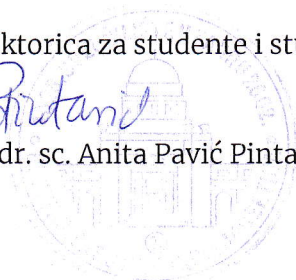 ktorica za studente i stu
dr. sc. Anita Pavić Pinta